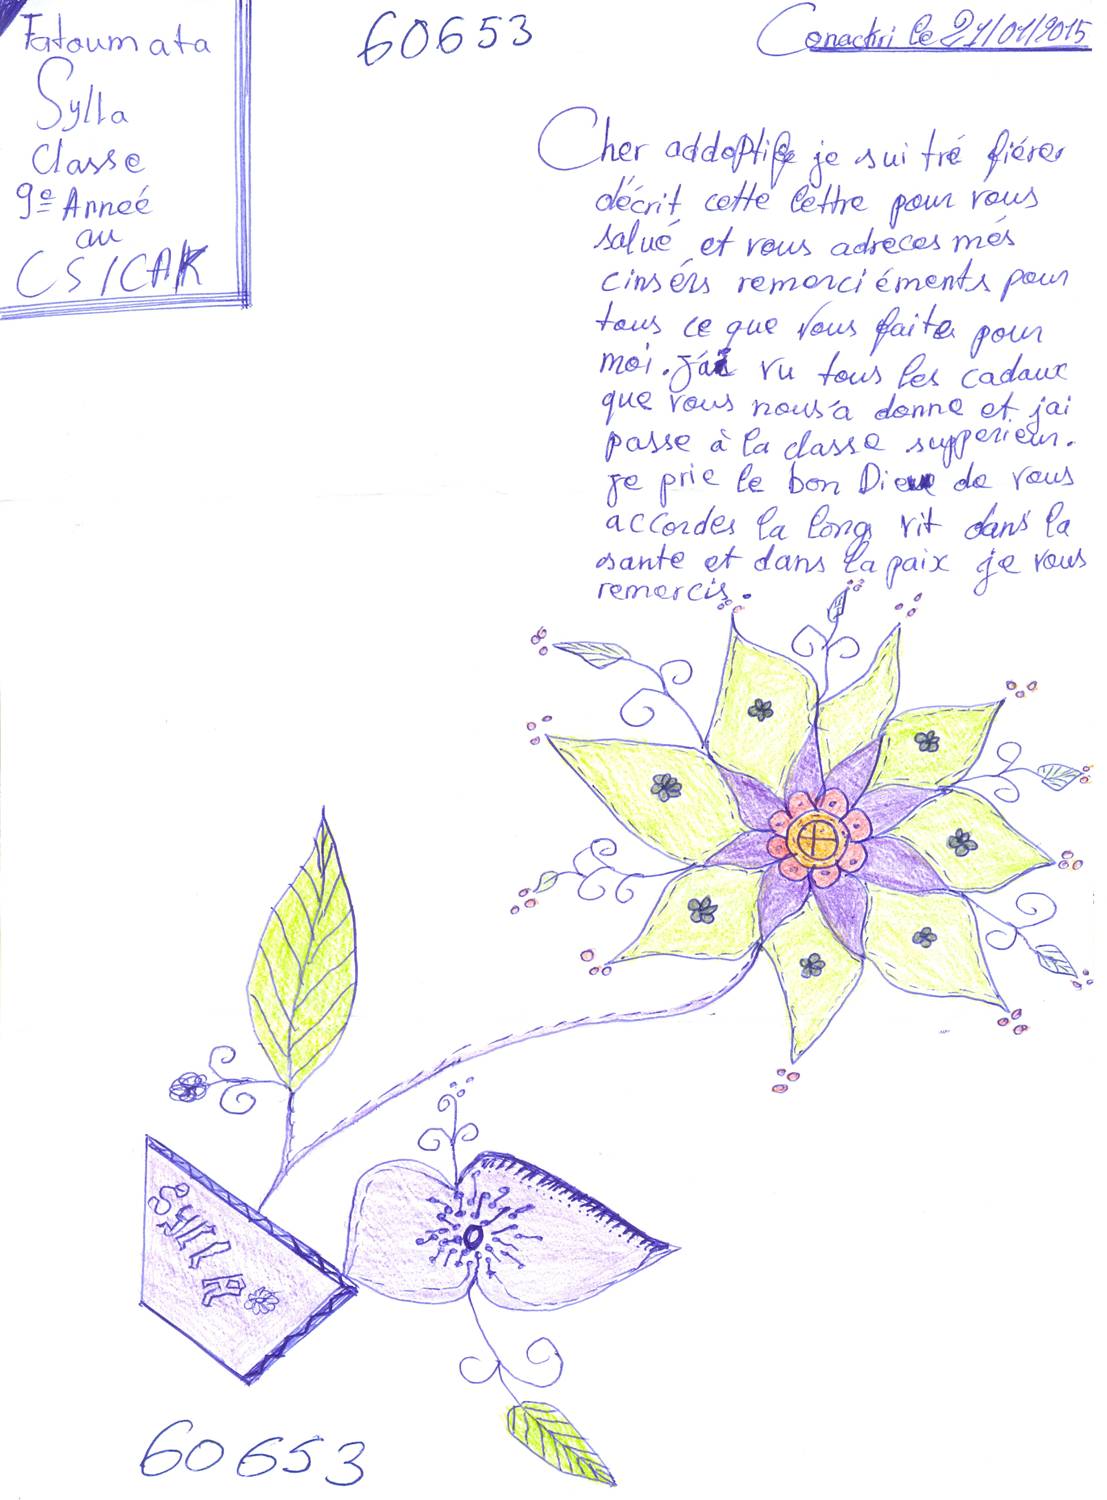 Fatoumata
Sylla
Classe
9e Anneé
au
CS/CAK
60653
Conackri le 21/01/2015
Cher addoptife je sui tré fiérer
d'écrit cette lettre pour vous
salué et vous adreces més
cinsérs remerciéments pour
tous ce que vous faite pour
moi. J'ai vu tous les cadaux
que vous nous'a donne et jai
passe à la classe supperieur.
je prie le bon Dieu de vous
accordes la long vit dans la
sante et dans la paix je vous
remercis.
SYLLA
60653